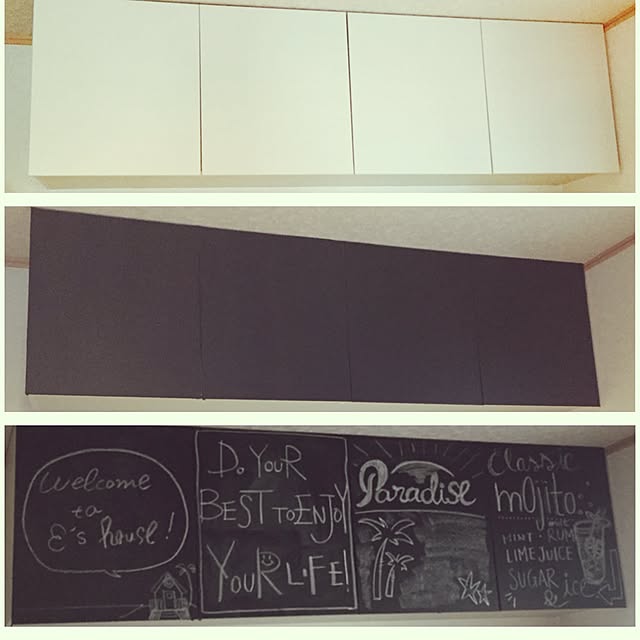 Welcome
to
E's house!
Do YouR
BEST to ENJOY
YouR LIFE!
Paradise
Classic
mOjito
MINT・RUM
LIME JUICE
SUGAR
& ice